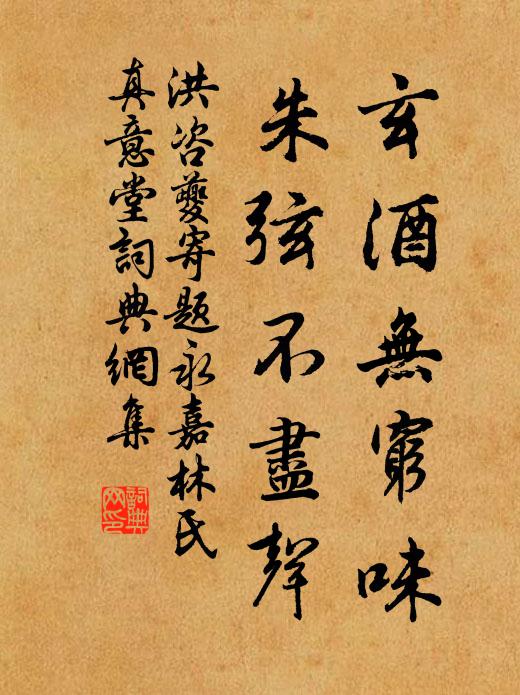 玄酒無窮味
朱弦不盡聲
洪咨夔寄題永嘉林氏
真意堂詞典網集
詞典网印